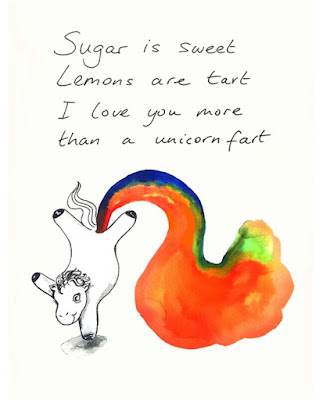 Sugar is sweet
Lemons are tart
I love you more
than a unicorn fart